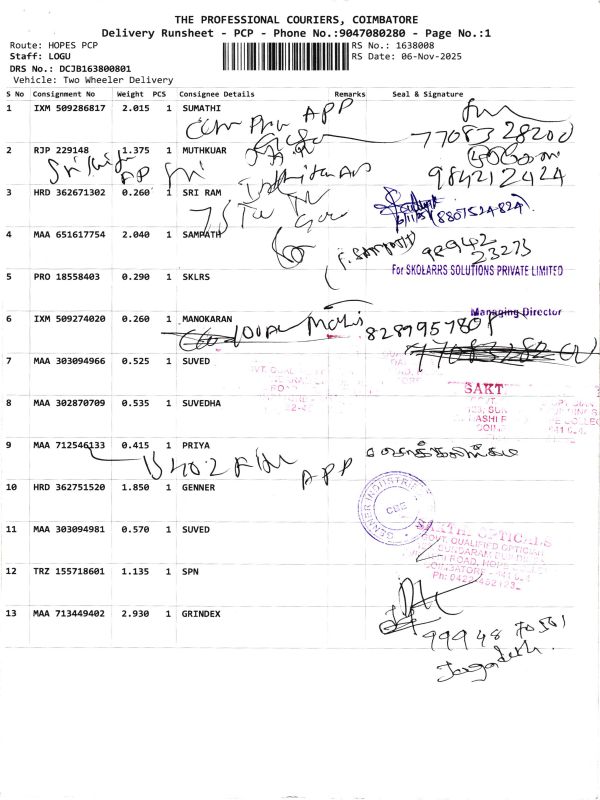 THE PROFESSIONAL COURIERS, COIMBATORE
Delivery Runsheet - PCP - Phone No.:9047080280 - Page No.:1
Route: HOPES PCP
RS No.: 1638008
Staff: LOGU
RS Date: 06-Nov-2025
DRS No.: DCJB163800801
Vehicle: Two Wheeler Delivery
S No Consignment No Weight PCS Consignee Details Remarks Seal & Signature
1 IXM 509286817 2.015 1 SUMATHI
APP
77083 28200
2 RJP 229148 1.375 1 MUTHKUAR
984212424
3 HRD 362671302 0.260 1 SRI RAM
6/11/25 (8807524824).
4 MAA 651617754 2.040 1 SAMPATH
F. SAMPATH 98942
23273
5 PRO 18558403 0.290 1 SKLRS
For SKOLARRS SOLUTIONS PRIVATE LIMITED
Managing Director
6 IXM 509274020 0.260 1 MANOKARAN
7 MAA 303094966 0.525 1 SUVED
SAKT
8 MAA 302870709 0.535 1 SUVEDHA
9 MAA 712546133 0.415 1 PRIYA
APP
10 HRD 362751520 1.850 1 GENNER
GENNER INDUSTRIES
CBE
11 MAA 303094981 0.570 1 SUVED
SAKTHI OPTICALS
GOVT. QUALIFIED OPTICIAN
12 TRZ 155718601 1.135 1 SPN
13 MAA 713449402 2.930 1 GRINDEX
99948 70561
Jagadesh.